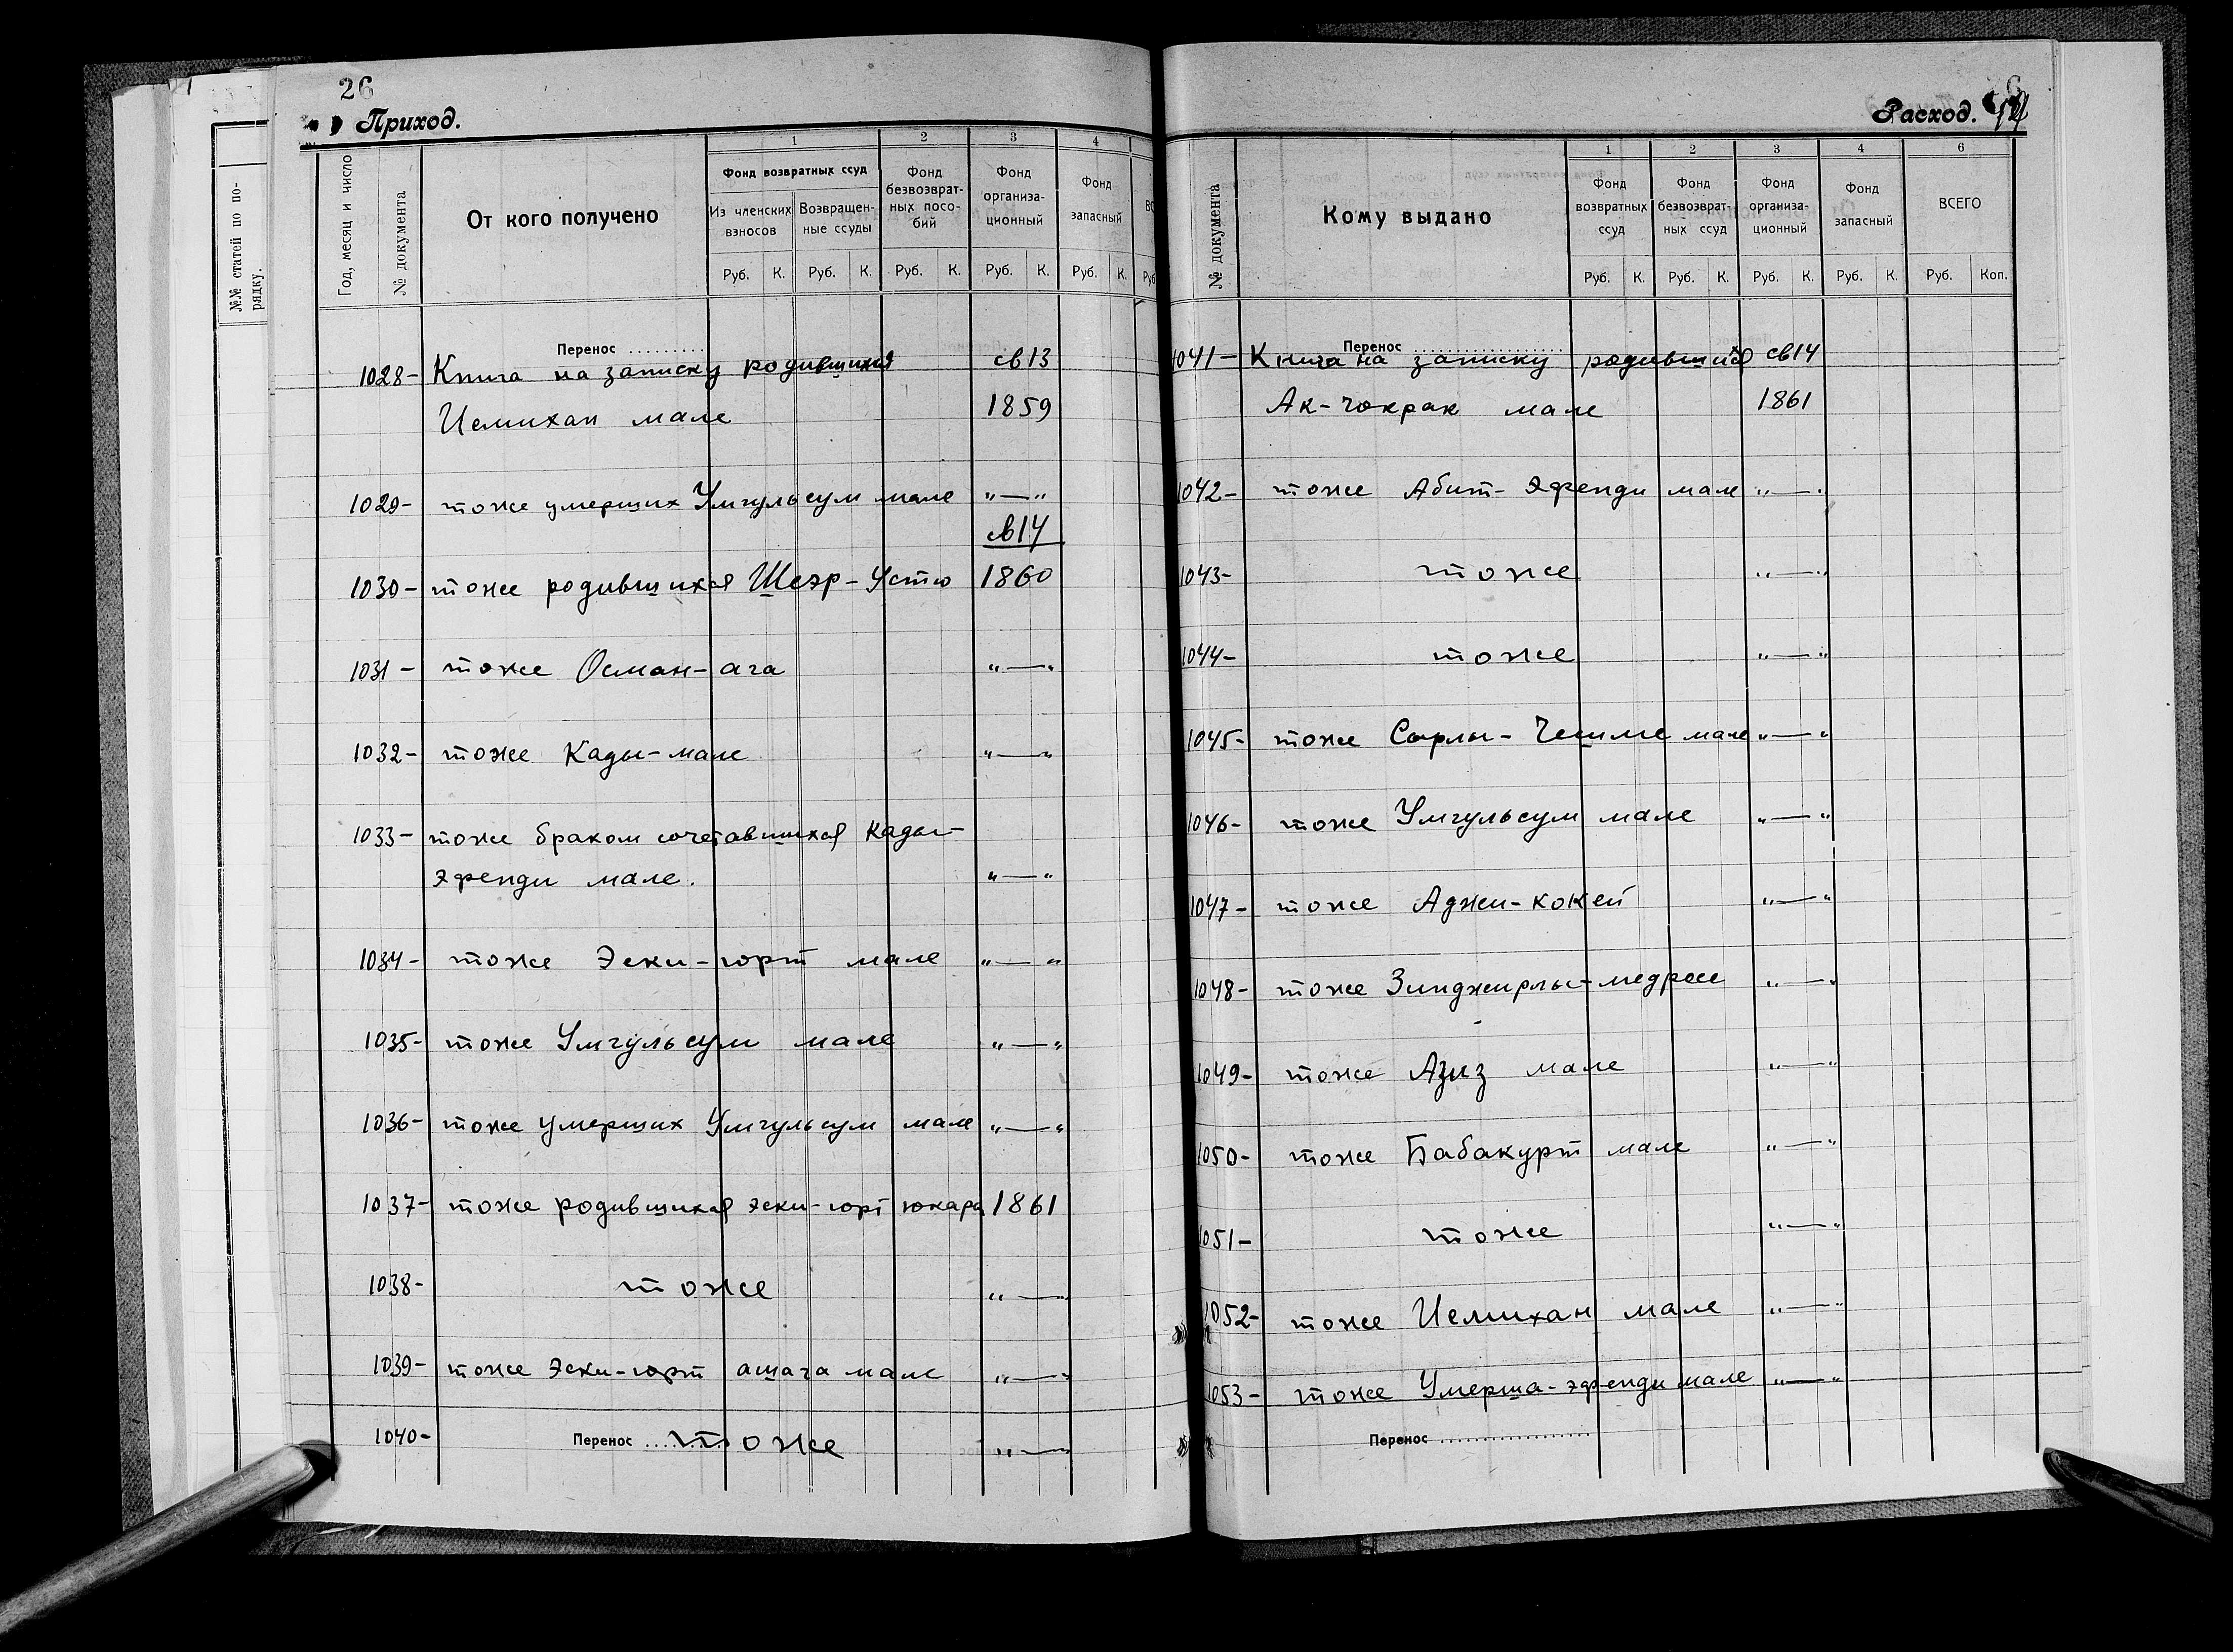 26
Приход.
Год, месяц и число
№ документа
От кого получено
1
Фонд возвратных ссуд
Из членских взносов
Возвращен-ные ссуды
2
Фонд безвозврат-ных посо-бий
3
Фонд организа-ционный
4
Фонд запасный
Руб. К. Руб. К. Руб. К. Руб. К. Руб. К.
№№ статей по по-рядку.
Перенос
1028- Книга на записку родившихся св 13
Исмихан мале 1859
1029- тоже умерших Умгульсум мале "—"
св 14
1030- тоже родившихся Шеэр-Устю 1860
1031- тоже Осман-ага "—"
1032- тоже Кады-мале "—"
1033- тоже браком сочетавшихся Кады-
эфенди мале. "—"
1034- тоже Эски-юрт мале "—"
1035- тоже Умгульсум мале "—"
1036- тоже умерших Умгульсум мале "—"
1037- тоже родившихся эски-юрт юкара 1861
1038- тоже "—"
1039- тоже Эски-юрт ашага мале "—"
1040- Перенос тоже "—"
Расход.
№ документа
Кому выдано
1
Фонд возвратных ссуд
2
Фонд безвозврат-ных ссуд
3
Фонд организа-ционный
4
Фонд запасный
6
ВСЕГО
Руб. К. Руб. К. Руб. К. Руб. К. Руб. Коп.
Перенос
1041- Книга на записку родившихся св 14
Ак-чокрак мале 1861
1042- тоже Абит-Эфенди мале "—"
1043- тоже "—"
1044- тоже "—"
1045- тоже Сырлы-Чешме мале "—"
1046- тоже Умгульсум мале "—"
1047- тоже Аджи-кокей "—"
1048- тоже Зинджирлы-медресе "—"
1049- тоже Азиз мале "—"
1050- тоже Бабакурт мале "—"
1051- тоже "—"
1052- тоже Исмихан мале "—"
1053- тоже Умерша-эфенди мале "—"
Перенос